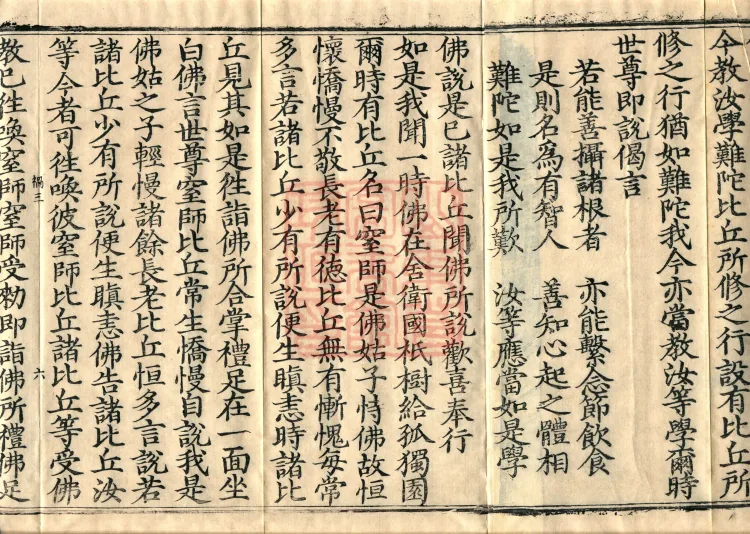 今教汝學難陀比丘所修之行設有比丘所
修之行猶如難陀我今亦當教汝等學爾時
世尊即說偈言
若能善攝諸根者　亦能繫念節飲食
是則名為有智人　善知心起之體相
難陀如是我所歎　汝等應當如是學
佛說是已諸比丘聞佛所說歡喜奉行
如是我聞一時佛在舍衛國祇樹給孤獨園
爾時有比丘名曰窒師是佛姑子恃佛故恒
懷憍慢不敬長老有德比丘無有慚愧每常
多言若諸比丘少有所說便生瞋恚時諸比
丘見其如是徃詣佛所合掌禮足在一面坐
白佛言世尊窒師比丘常生憍慢自說我是
佛姑之子輕慢諸餘長老比丘恒多言說若
諸比丘少有所說便生瞋恚佛告諸比丘汝
等今者可徃喚彼窒師比丘諸比丘等受佛
三　六
教已徃喚窒師窒師受勑即詣佛所禮佛足